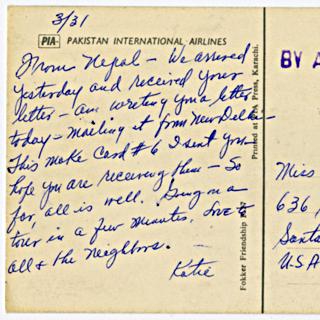 3/31
PIA PAKISTAN INTERNATIONAL AIRLINES
From Nepal - We arrived
yesterday and received your
letter - am writing you a letter
today - mailing it from New Delhi -
This make Card #6 I sent you -
hope you are receiving them - So
far, all is well. Going on a
tour in a few minutes. Love to
all & the neighbors.
Katie
Fokker Friendship
Press, Karachi.
BY A
Miss
636
Santa
U.S.A